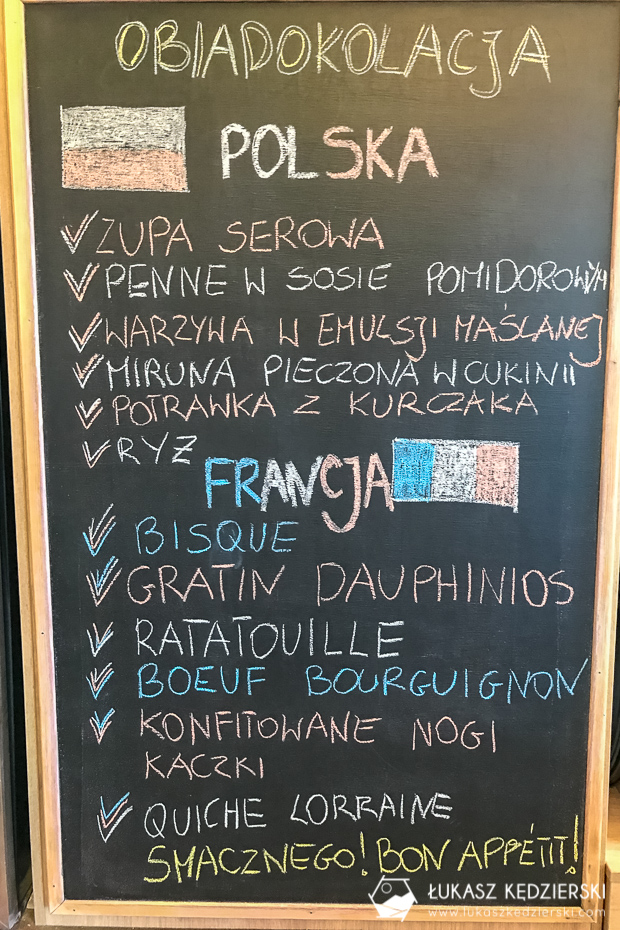 OBIADOKOLACJA
POLSKA
ZUPA SEROWA
PENNE W SOSIE POMIDOROWYM
WARZYWA W EMULSJI MAŚLANEJ
MIRUNA PIECZONA W CUKINII
POTRAWKA Z KURCZAKA
RYŻ
FRANCJA
BISQUE
GRATIN DAUPHINIOS
RATATOUILLE
BOEUF BOURGUIGNON
KONFITOWANE NOGI
KACZKI
QUICHE LORRAINE
SMACZNEGO! BON APPÉTIT!
ŁUKASZ KĘDZIERSKI
www.lukaszkedzierski.com